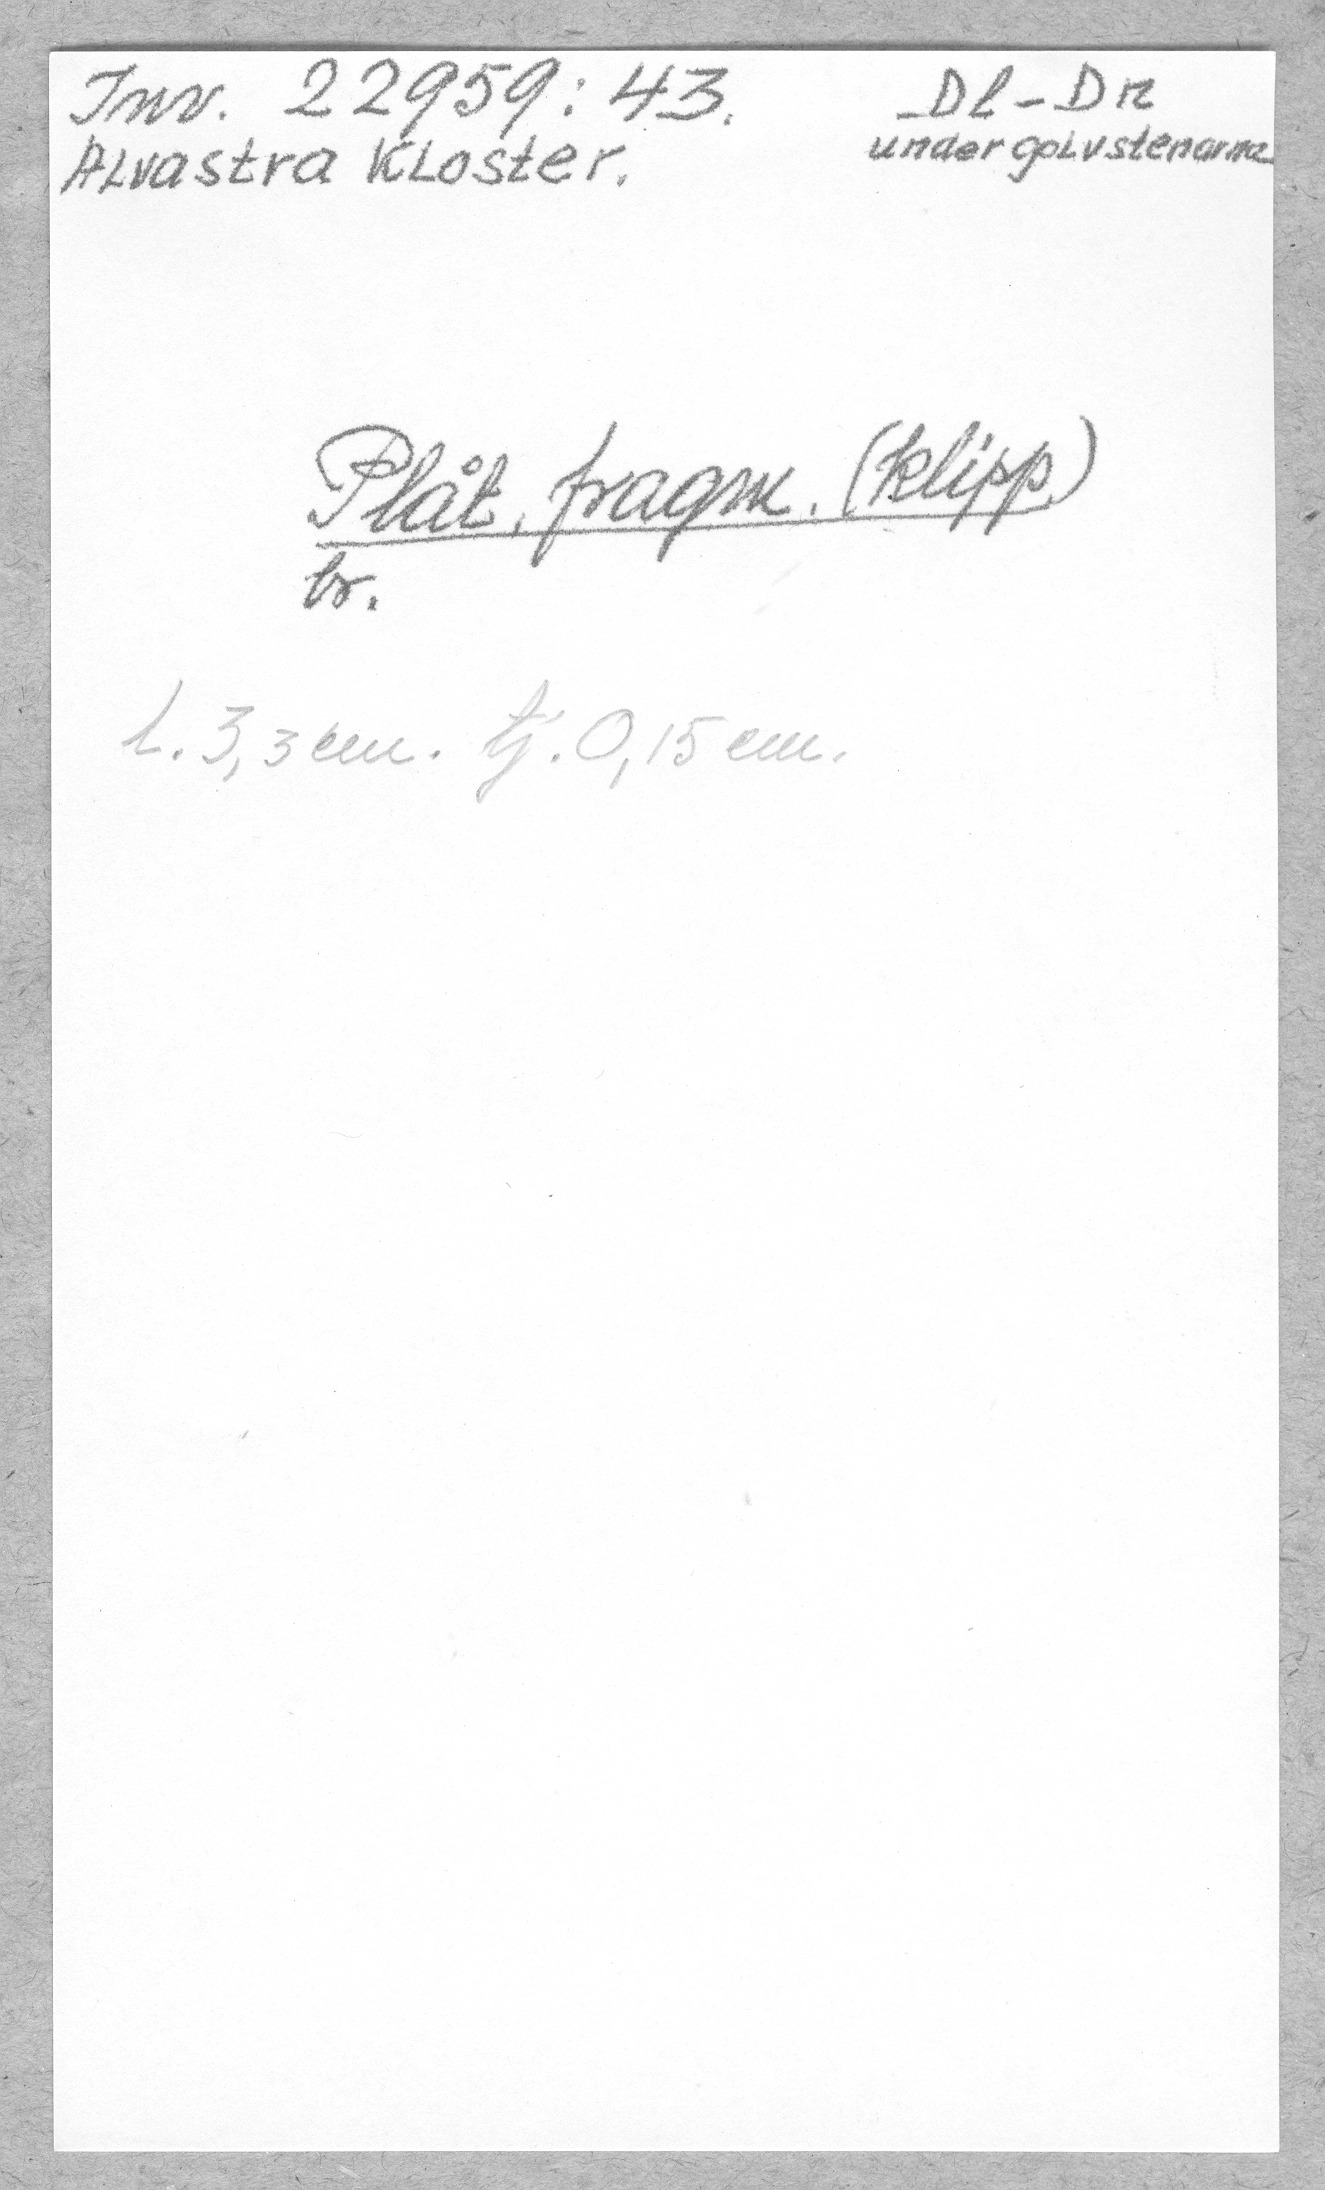 Inv. 22959:43.
Dl – Dn
Alvastra Kloster.
under golvstenarna
Plåt, fragm. (klipp)
br.
L. 3,3 cm. tj. 0,15 cm.